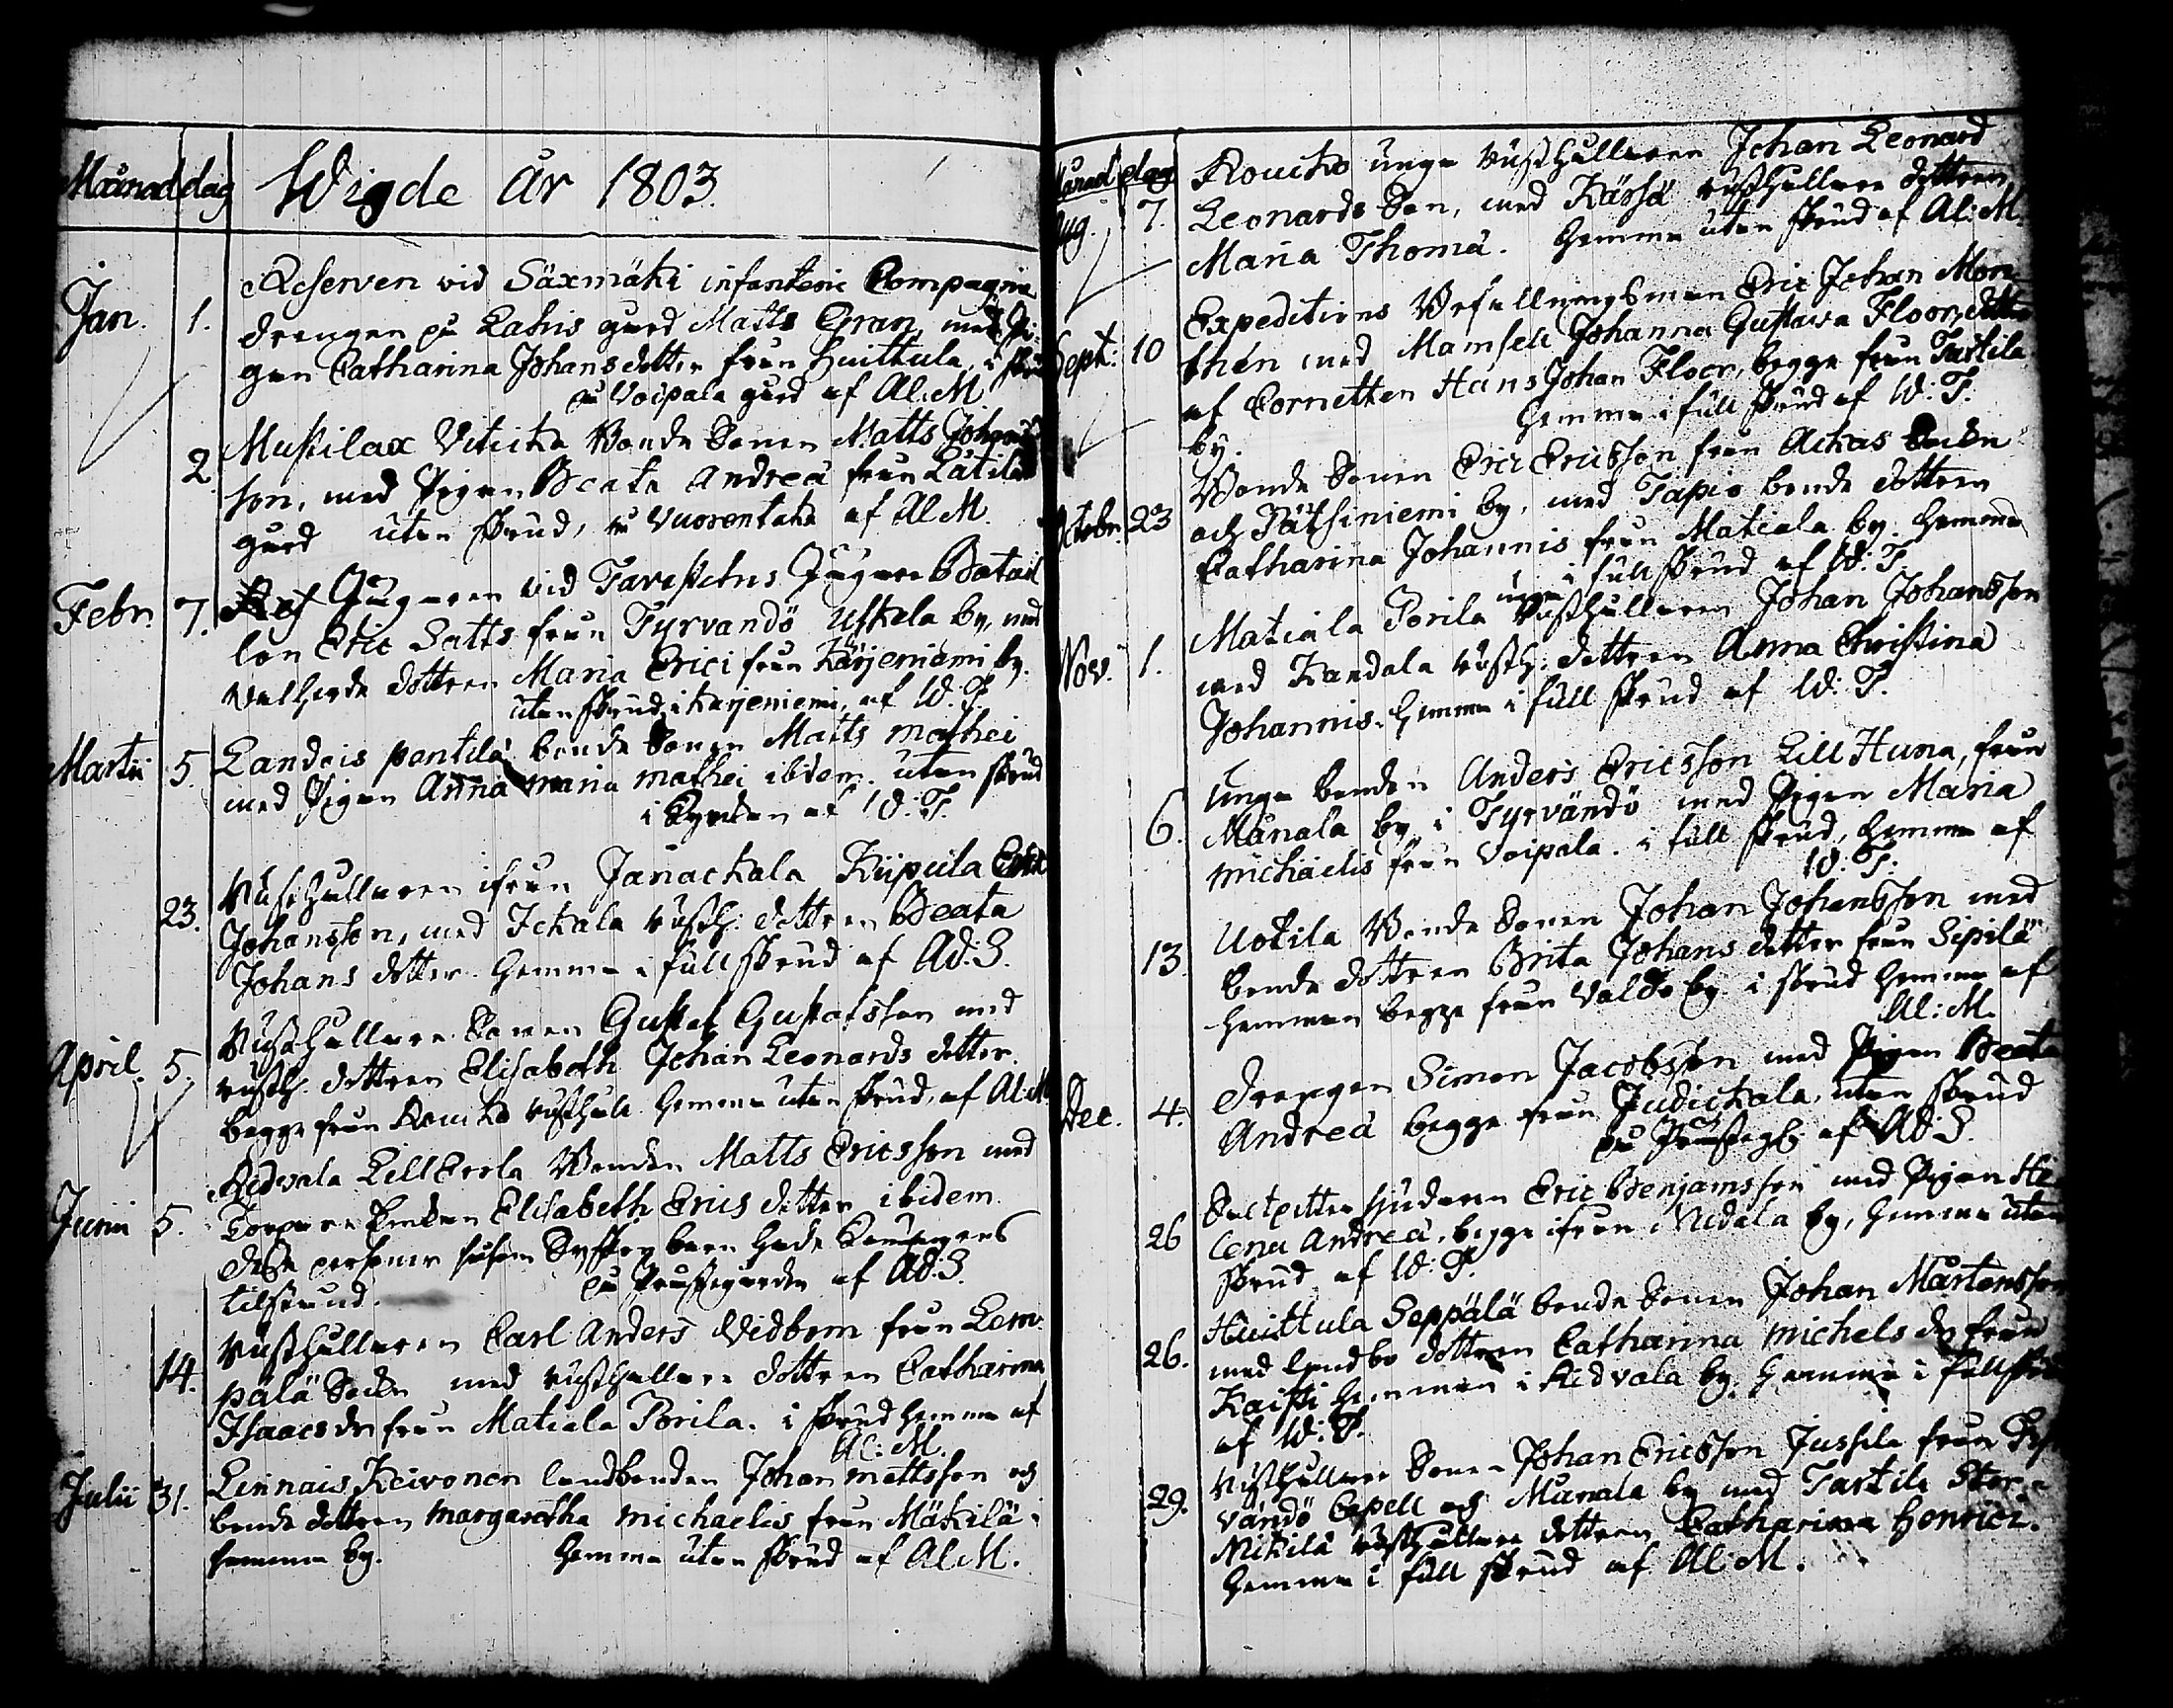 Månad dag Wigde år 1803.
Jan. 1. Reserven vid Säxmäki infanterie Compagnie
drengen på Lahis gård Matts Gran, med Pi-
gan Catharina Johans dotter från Huittula, i skrud
på Voipala gård af Al: M
2. Mustilax Viticka Bonde Sonen Matts Johans
son, med Pigan Beata Andreä från Lätilä
gård uten skrud, på Vuorentaka af Al M.
Febr. 7. Jägaren vid Tavastehus Jägare Batail
lon Eric Satts från Tyrvändö Uskela by, med
Maria Erici från Kärjeniemi by.
uten skrud i Karjeniemi, af W. T.
Martii 5. Landois pentilä bonde Sonen Matts mathei
med Pigan Anna maria mathei ibidem. uten skrud
i Kyrkan af W. T.
23. Rusthållaren ifrån Janackala Kiipula Eric
Johansson, med Ickala rusth. dottren Beata
Johans dotter. Hemma i full skrud af Ad. S.
April. 5. Rusthållare Sonen Gustaf Gustafsson med
rusth. dottren Elisabeth Johan Leonards dotter.
begge från Roucko rusthåll. Hemma uten skrud, af Al: M
Junii 5. Ridvala Lill Erola Bonden Matts Ericsson med
Torpare Enkan Elisabeth Erics dotter ibidem.
desse personer såsom Syskon barn hade Konungens
tilstånd. på Prustegården af Ad. S.
14. Rusthållaren Carl Anders Widbom från Lem-
pälä Sokn med rusthållare dottren Catharina
Isaacs dr från Matiala Porila. i skrud hemma af
Al: M.
Julii 31. Linnais Keivonen landbonden Johan mattsson och
bonde dottren margaretha michaelis från Mäkilä
hemma by. Hemma uten skrud af Al M.
Månad dag
Aug. 7. Roucko unga rusthållaren Johan Leonard
Leonards Son, med Kärsä rusthållare dottren
Maria Thomä. Hemma uten skrud af Al: M.
Sept: 10 Expeditions Befallningsman Eric Johan Mon
thén med Mamsell Johanna Gustava Floor, dotter
af Cornetten Hans Johan Floor, begge från Tartila
by. Hemma i full skrud af W. T.
Octobr. 23 Bonde Sonen Eric Ericsson från Ackas Sockn
och Pätsiniemi by, med Tapio bonde dottren
Catharina Johannis från Matiala by. hemma
i full skrud af W. T.
Nov. 1. Matiala Porila unga Rusthållaren Johan Johansson
med Kandala rusth: dottren Anna Christina
Johannis. Hemma i full skrud af W. T.
6. Unga bonden Anders Ericsson Lill Huna, från
Månala by i Tyrvändö med Pigan Maria
michaelis från Voipala. i full skrud, hemma af
W. T.
13. Uotila Bonde Sonen Johan Johansson med
bonde dottren Brita Johans dotter från Sipilä
hemman begge från Valdo by. i skrud hemma af
Al: M.
Dec. 4. Drengen Simon Jacobsson med Pigan Beata
Andreä begge från Judickala, uten skrud
på Prusteg. af Ad. S.
26 Saltpetter sjudaren Eric Benjamsson med Pigan He
lena Andreä, begge ifrån Nidala by, hemma uten
skrud af W. T.
26. Huittula Seppälä bonde Sonen Johan Mårtensson
med landbo dottren Catharina michels dr från
Kaisti hemman i Ridvala by. hemma i full skrud
af W. T.
29. Rusthållare Sonen Johan Ericsson Jussila från Tyr
vändö Capell och Månala by med Tartila Stor-
Nikilä rusthållare dottren Catharina Henrici.
hemma i full skrud af Al: M.